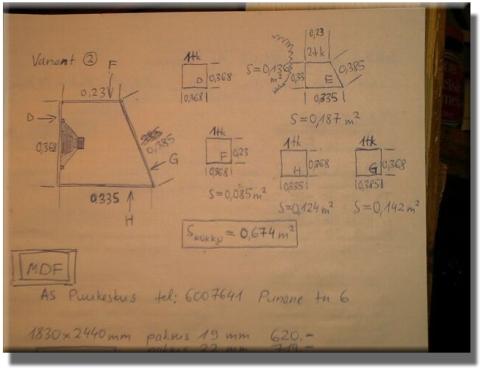 Variant ②
F
0,23
D
0,368
0,385
G
0,335
H
1tk
D
0,368
0,368
S=0,136 m²
0,23
2tk
0,33
E
0,385
0,335
S=0,187m²
1tk
F
0,23
0,368
S=0,085m²
1tk
H
0,368
0,335
S=0,124m²
1tk
G
0,368
0,385
S=0,142m²
Skokku = 0,674m²
MDF
AS Puukeskus tel: 6007641 Punane tn 6
1830×2440mm paksus 19 mm 620.-
paksus 22 mm